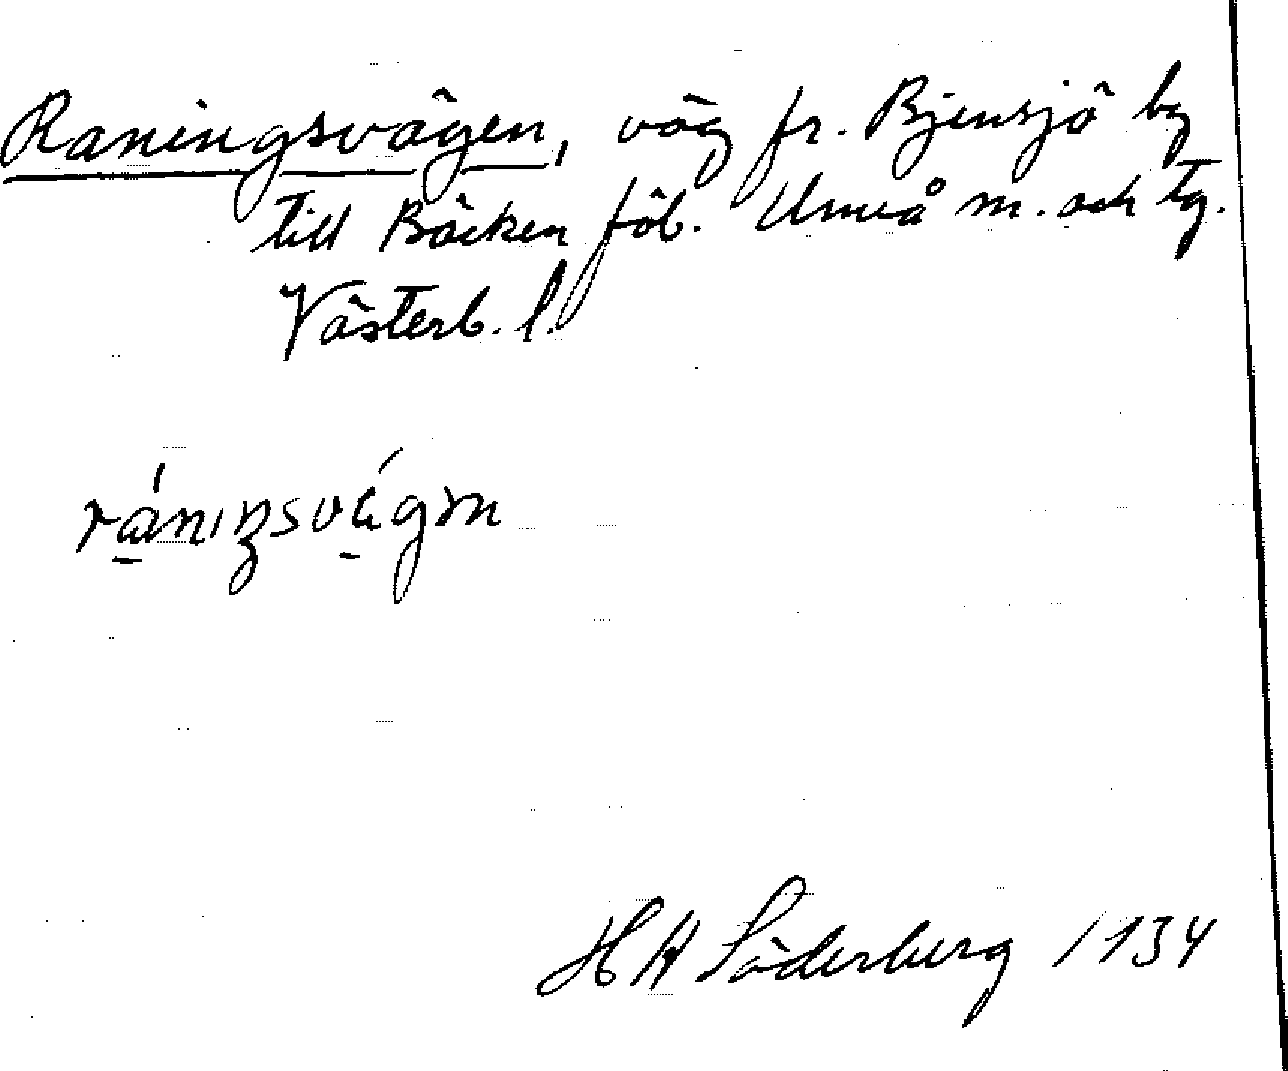 Raningsvägen, väg fr. Bjensjö by
till Bäcken fäb. Umeå m. och tg.
Västerb. l.
ráningsvágən
H A Söderberg 1934